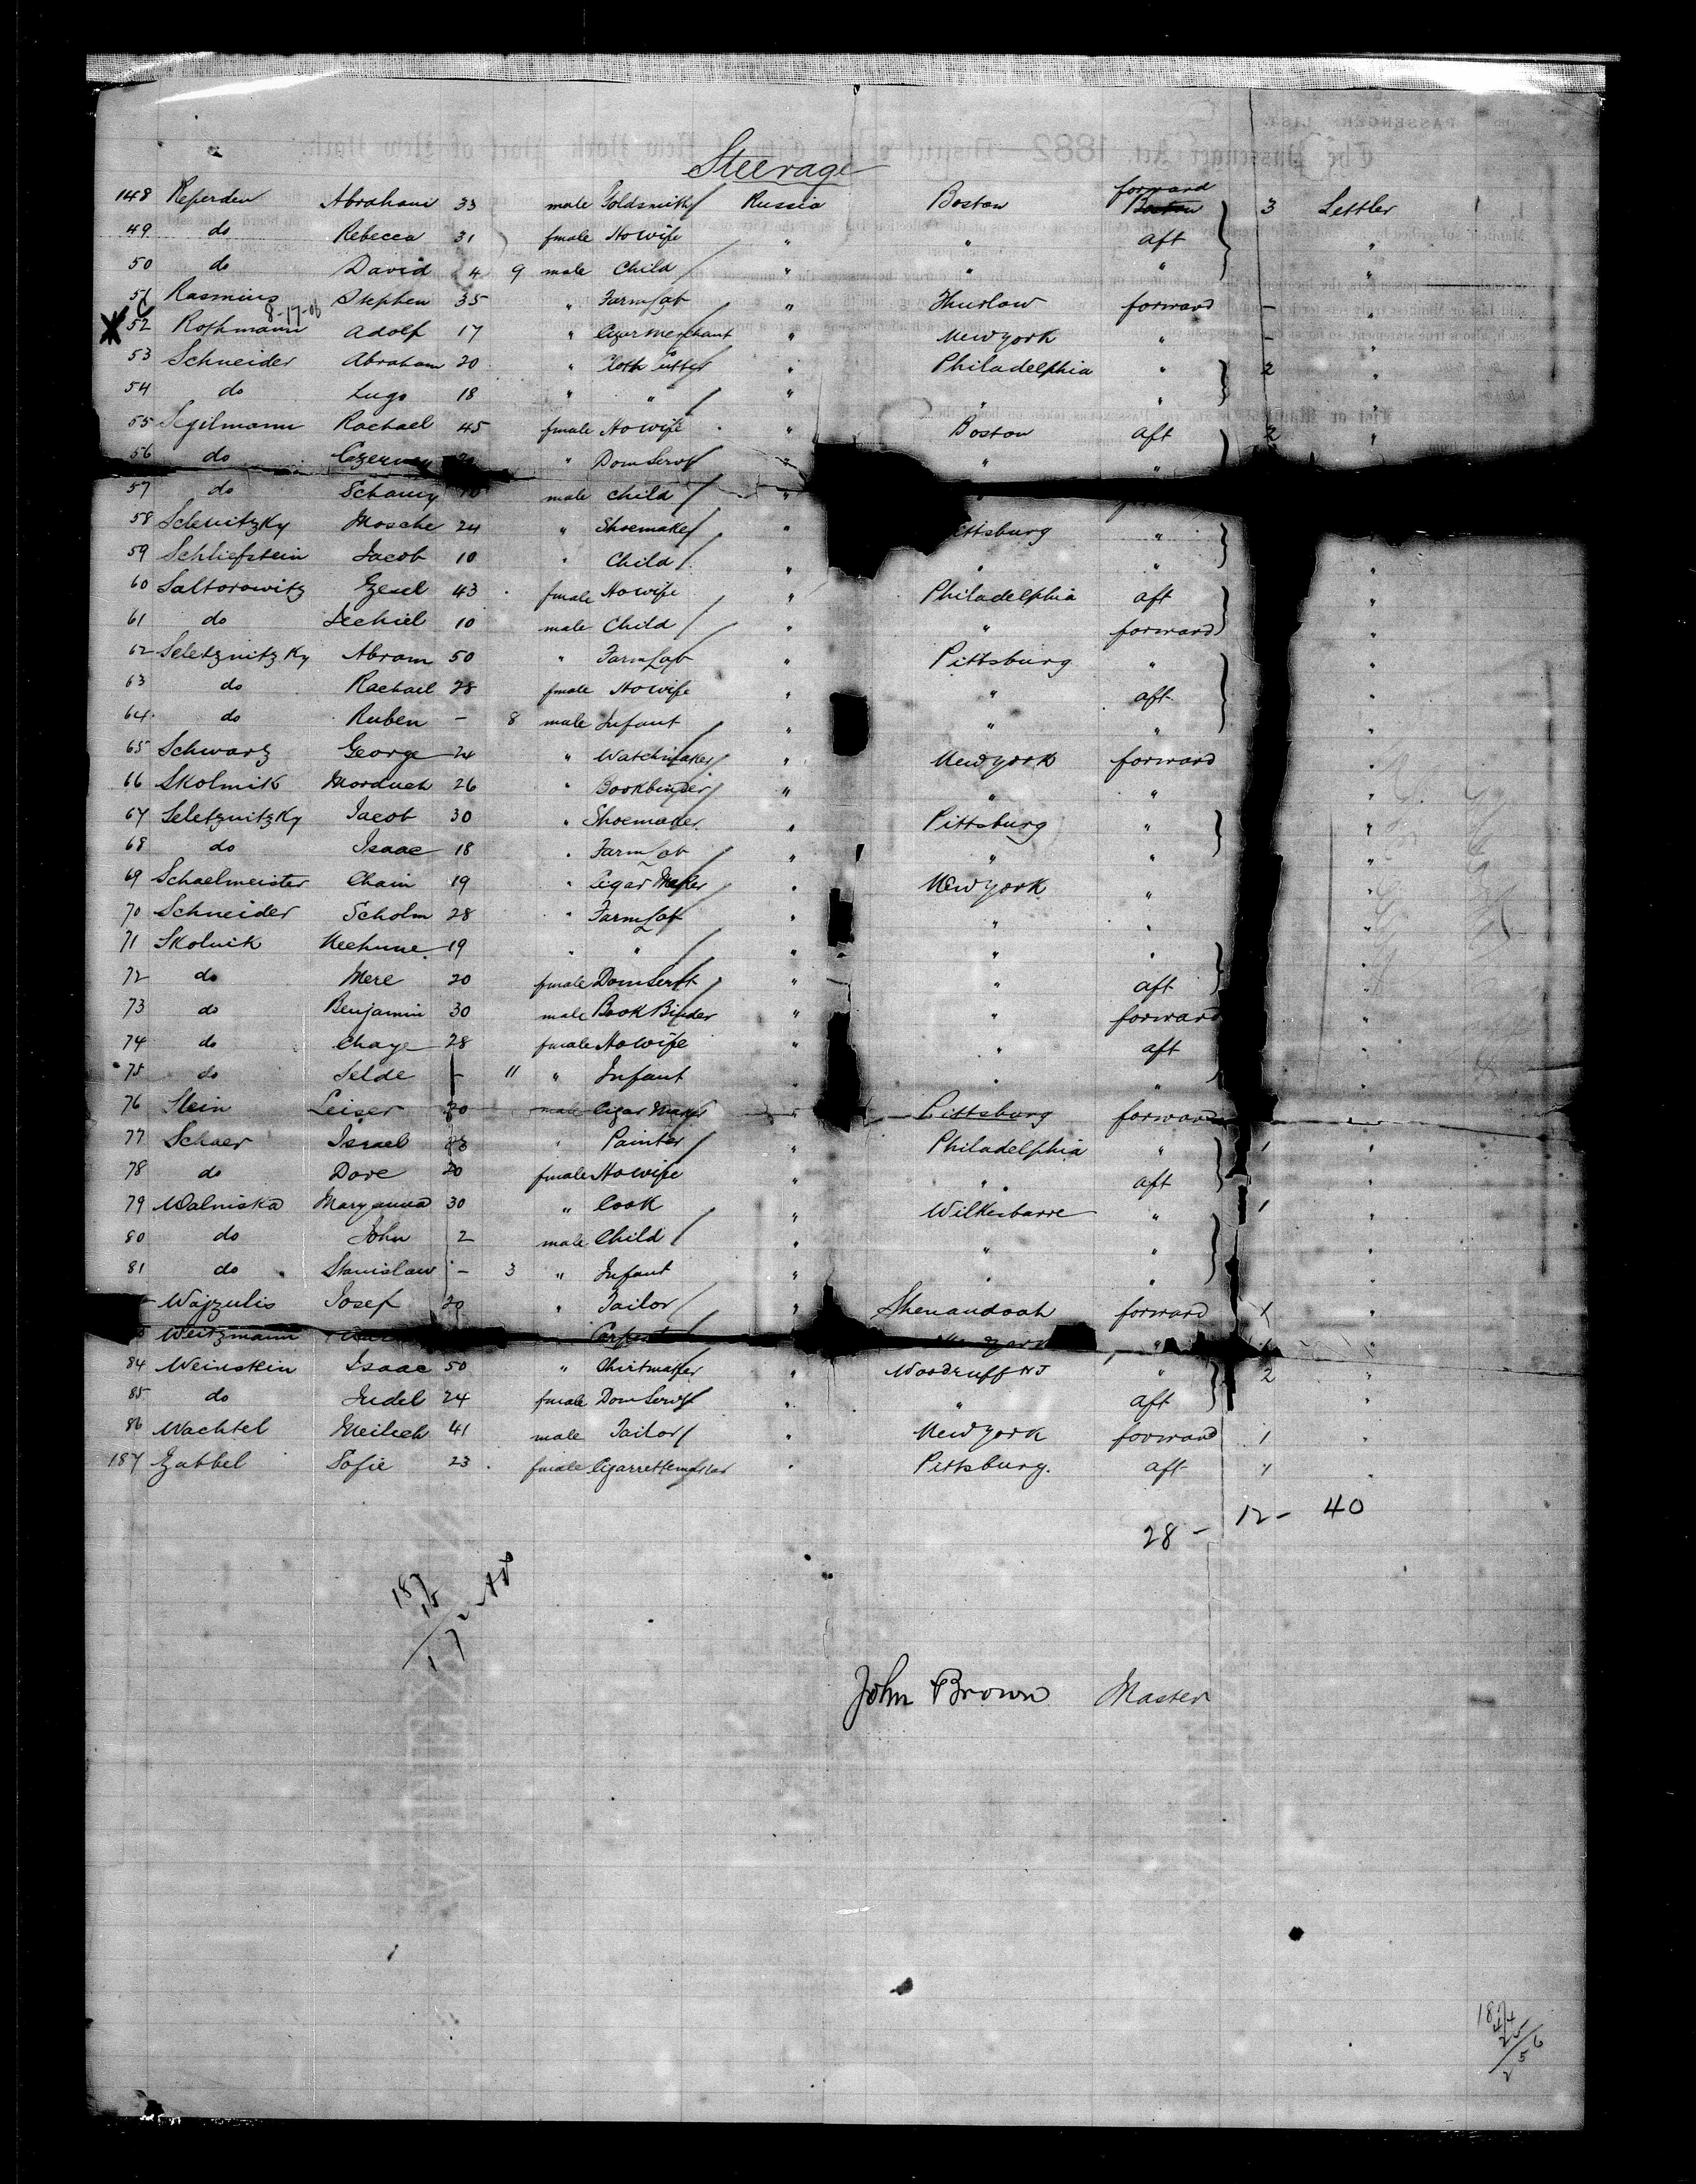 Steerage
148 Reperden Abraham 33 male Goldsmith Russia Boston forward Boston 3 Settler
49 do Rebecca 31 fmale Howife " " aft "
50 do David 4 9 male Child " " " "
51 Rasmius Stephen 35 " Farm Lab " Thurlow forward - "
8-17-06
52 Rothmann Adolf 17 " Cigar Merchant " New York " - "
53 Schneider Abraham 20 " Cloth Cutter " Philadelphia " 2 "
54 do 18 " " " " " "
55 Segilmann Rachael 45 fmale Howife " Boston aft 2 "
56 do " Dom Servt " " "
57 do male Child " "
58 Mosche 24 " Shoemaker " "
59 Schliefstein Jacob 10 " Child " " " "
60 Saltorowitz 43 fmale Howife " Philadelphia aft "
61 do 10 male Child " " forward "
62 Seletznitzky Abram 50 " Farm Lab " Pittsburg " "
63 do Rachail 28 fmale Howife " " aft "
64 do Ruben - 8 male Infant " " " "
65 Schwarz George 24 " Watchmaker " New York forward "
66 Skolmik Morduch 26 " Bookbinder " " " "
67 Seletznitzky Jacob 30 " Shoemaker " Pittsburg " "
68 do Isaac 18 " Farm Lab " " " "
69 Schaelmeister Chain 19 " Cigar Maker " New York " "
70 Schneider Scholm 28 " Farm Lab " " " "
71 Skolnik Nechume 19 " " " " " "
72 do Mere 20 fmale Dom Servt " " aft "
73 do Benjamin 30 male Book Binder " " forward "
74 do Chaye 28 fmale Howife " " aft "
75 do Selde - 11 " Infant " " " "
76 Stein Leiser 20 male Cigar Maker " Pittsburg forward
77 Schaer Israel " Painter " Philadelphia " 1 "
78 do Dove 20 fmale Howife " " aft "
79 Walniska Maryanna 30 " Cook " Wilkesbarre " 1 "
80 do John 2 male Child " " " "
81 do Stanislaw - 3 " Infant " " " "
Wajzulis Josef 20 " Tailor " Shenandoah forward 1 "
Weitzmann " "
84 Weinstein Isaac 50 " Shirtmaker " Woodruff NJ " 2 "
85 do Judel 24 fmale Dom Servt " " aft "
86 Wachtel Meilech 41 male Tailor " New York forward 1 "
187 Zabbel Sofie 23 fmale Cigarrettemaker " Pittsburg. aft 1 "
28 - 12 - 40
John Brown Master